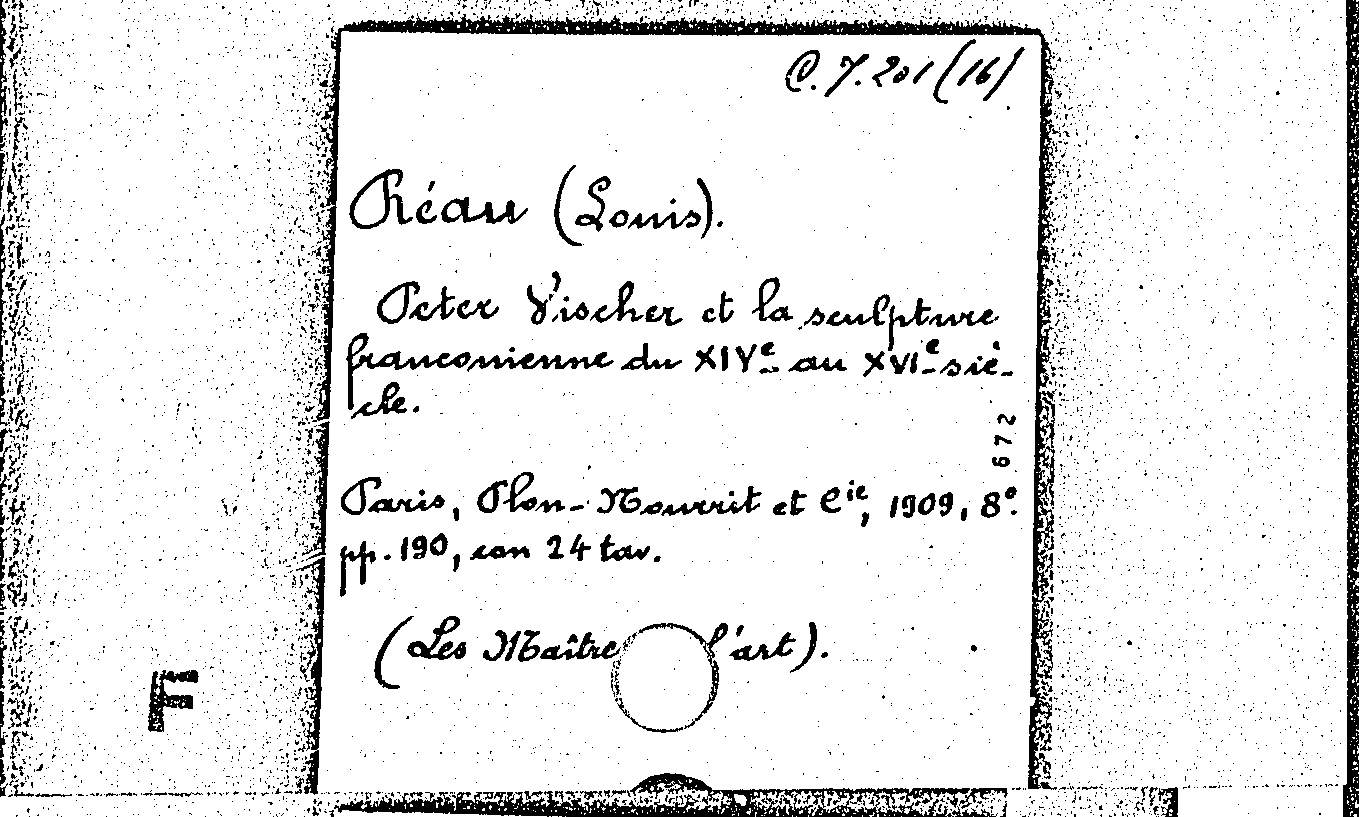 C. 7. 201 (16)
Réau (Louis).
Peter Vischer et la sculpture
franconienne du XIVe au XVIe siè-
cle.
672
Paris, Plon-Nourrit et Cie, 1909, 8º.
pp. 190, con 24 tav.
(Les Maître l'art).
F